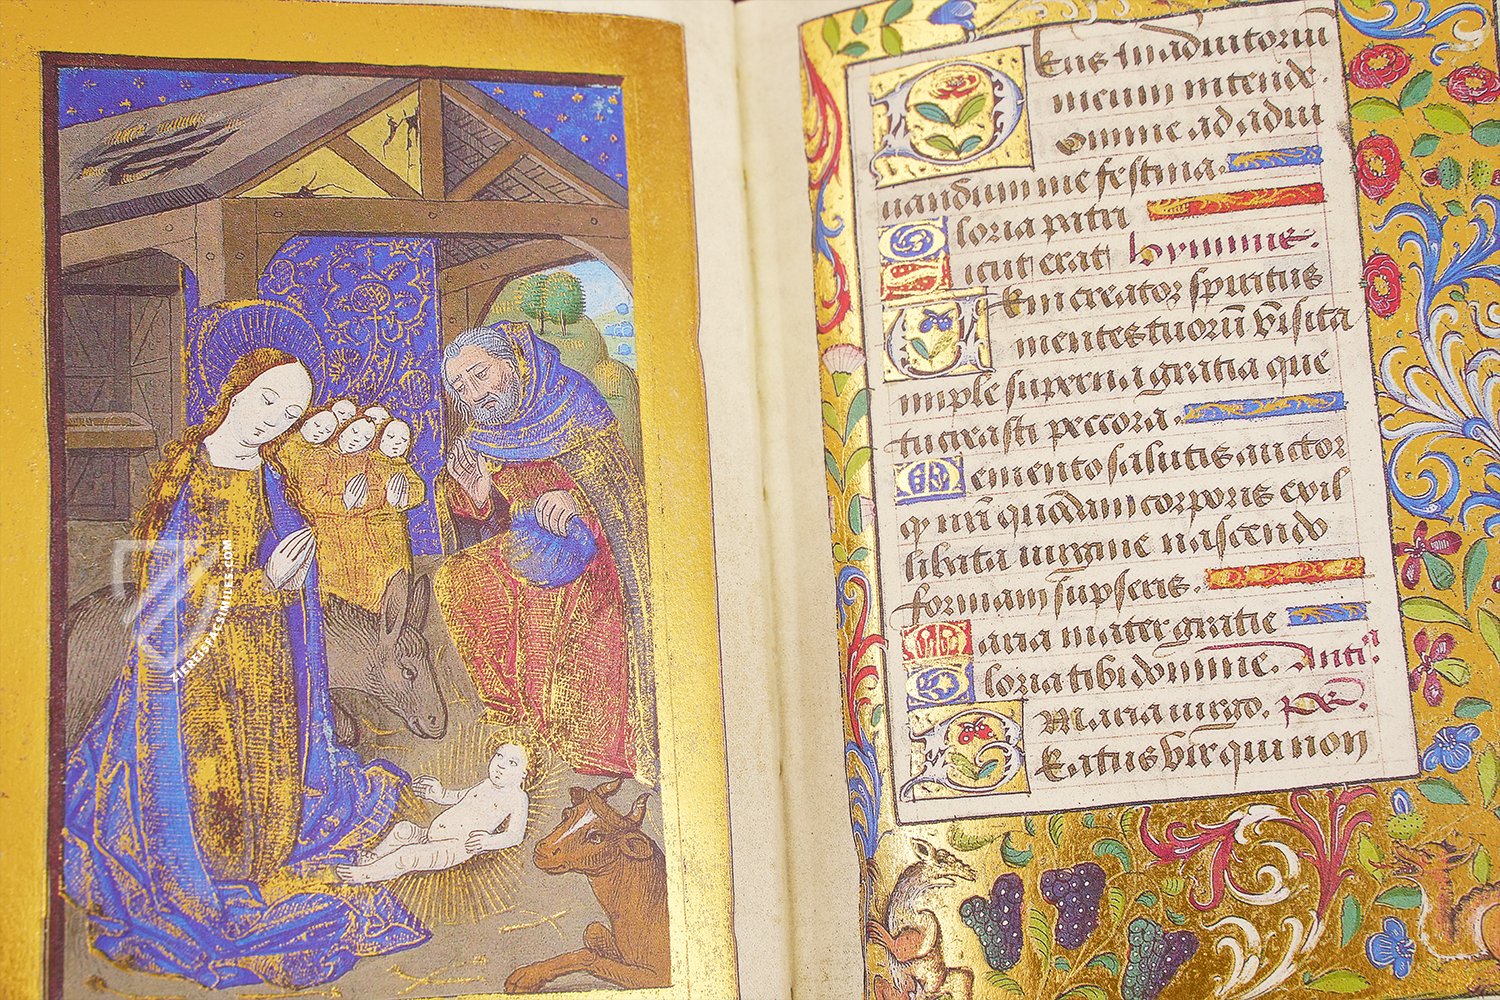 Deus in adiutoriu
meum intende.
Domine ad adiu
uandum me festina.
Gloria patri
Sicut erat hymnne.
Veni creator spiritus
mentes tuorū visita
imple superna gratia que
tu creasti peccora.
Memento salutis auctor
qͥ nr̄i quōdam corporis exil
libata virgine nascendo
formam sūpseris.
Maria mater gratie
Gloria tibi domine. Anti.ª
Maria virgo. ps.
Beatus vir qui non
ZIEREISFACSIMILES.COM